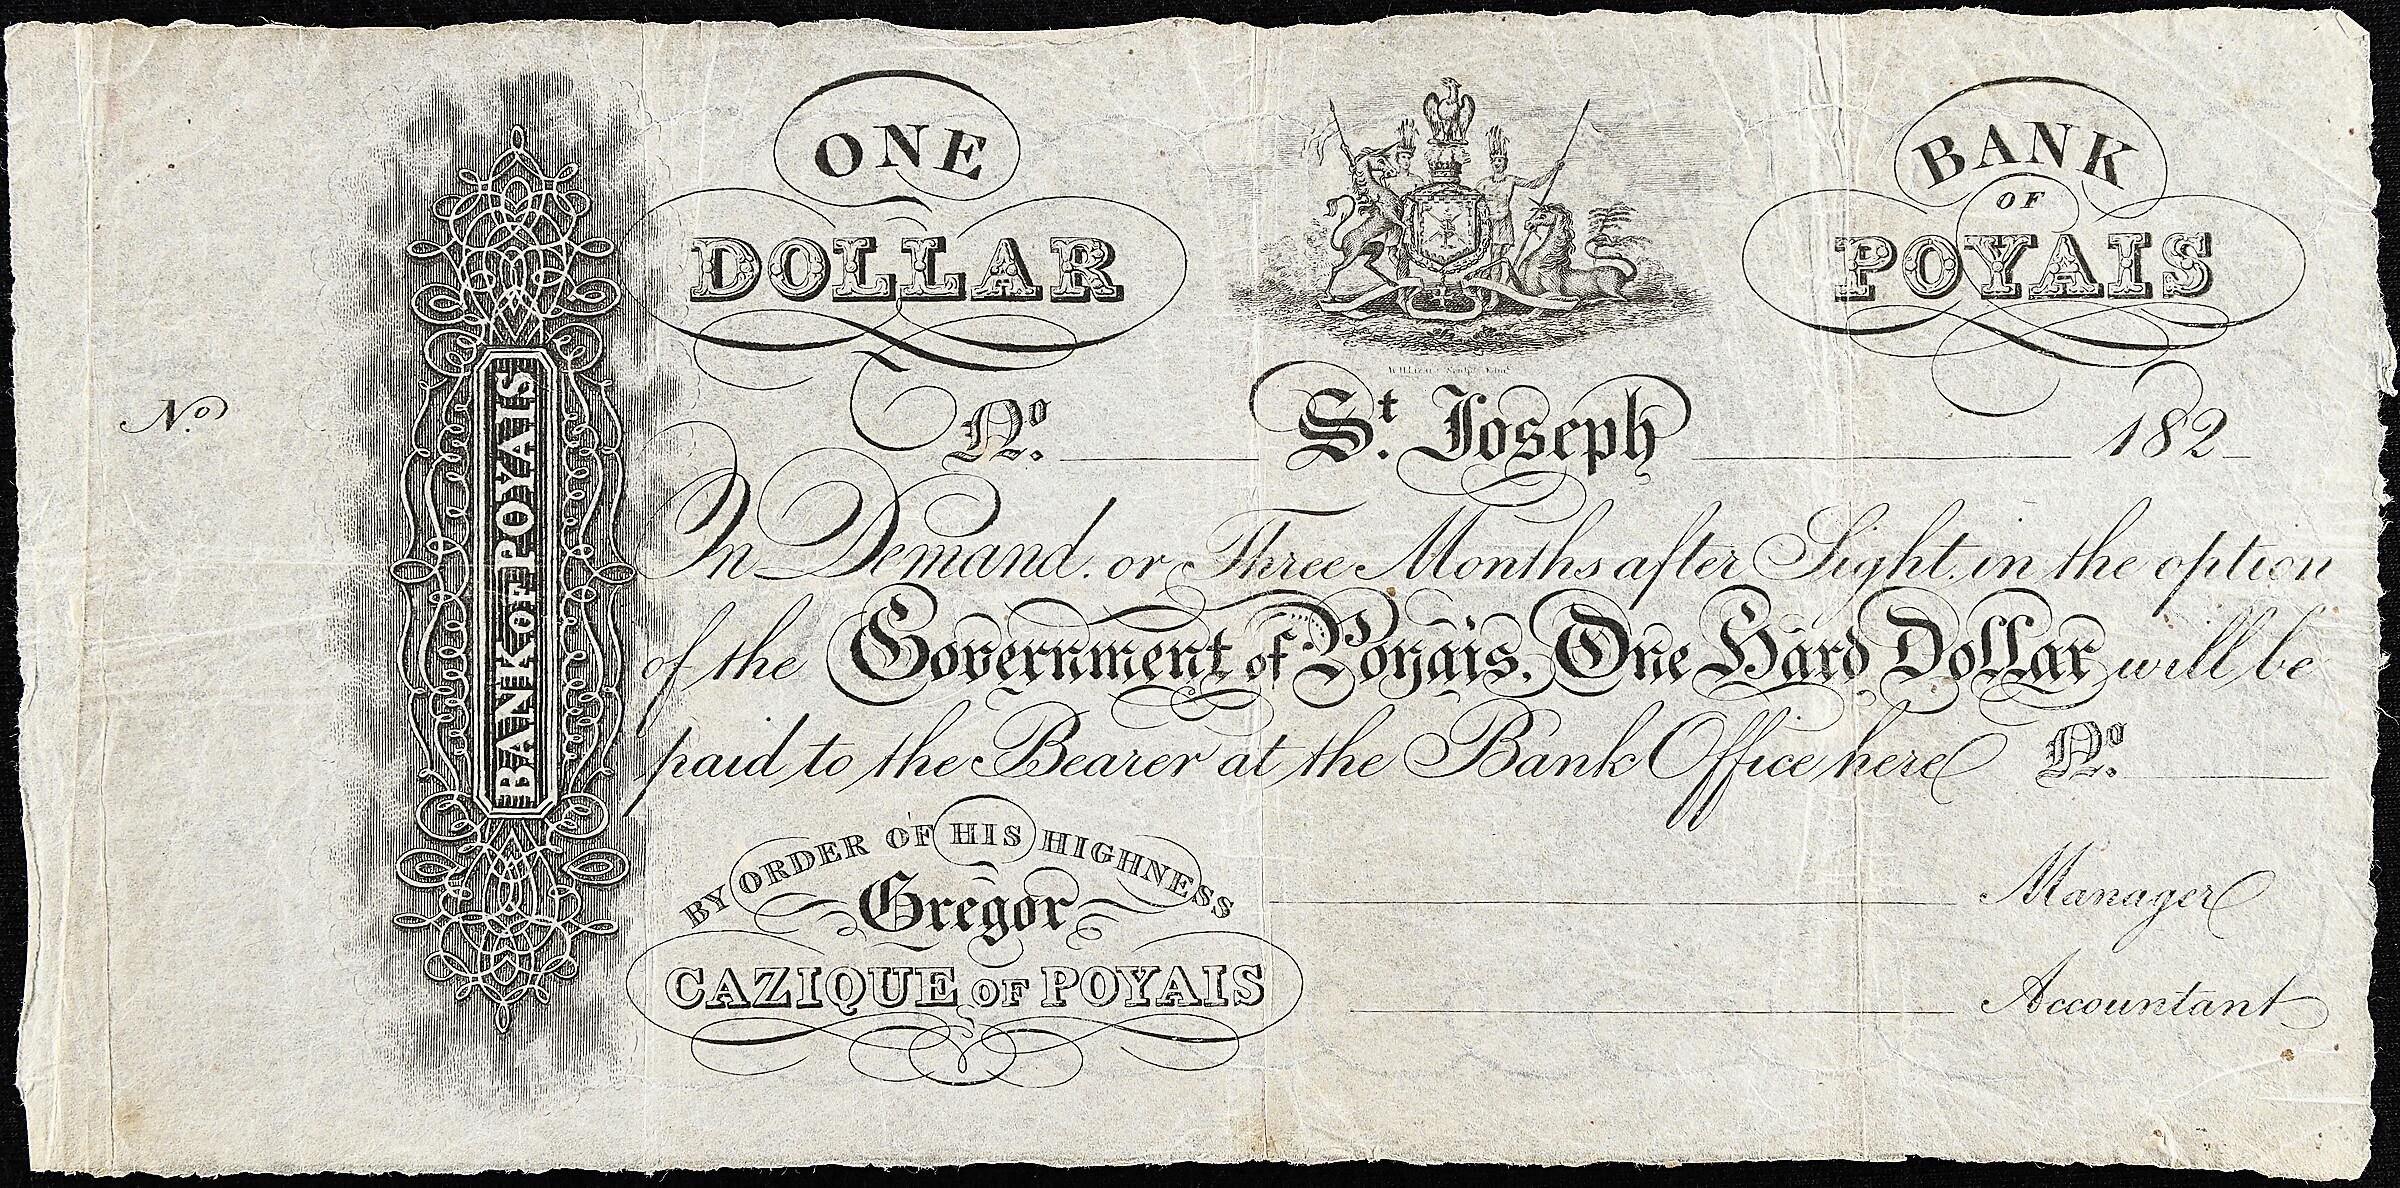 ONE
DOLLAR
BANK
OF
POYAIS
BANK OF POYAIS
No.
No. St. Joseph 182
On Demand, or Three Months after Sight, in the option
of the Government of Poyais, One Hard Dollar will be
paid to the Bearer at the Bank Office here No.
BY ORDER OF HIS HIGHNESS
Gregor
CAZIQUE OF POYAIS
Manager
Accountant